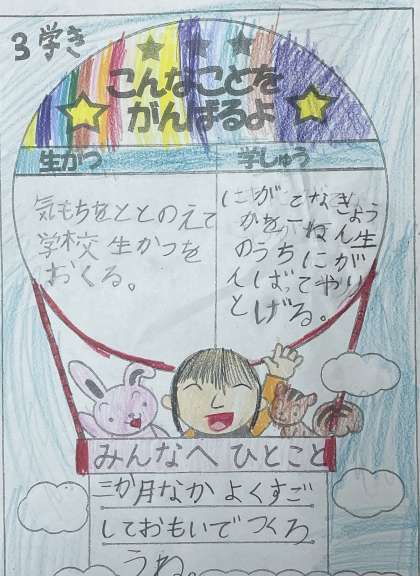 3学き
こんなことを
がんばるよ
生かつ
学しゅう
気もちをととのえて
学校生かつを
おくる。
にがてなきょう
かを二ねん生
のうちにが
んばってやり
とげる。
みんなへ ひとこと
三か月なかよくすご
しておもいでつくろ
うね。